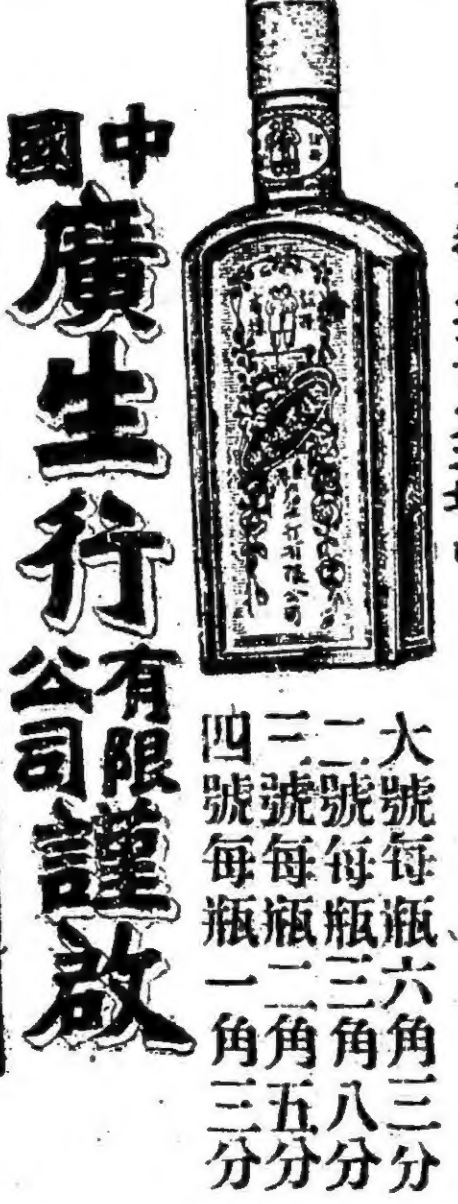 大號每瓶六角三分
二號每瓶三角八分
三號每瓶二角五分
四號每瓶一角三分
中國廣生行有限公司謹啟